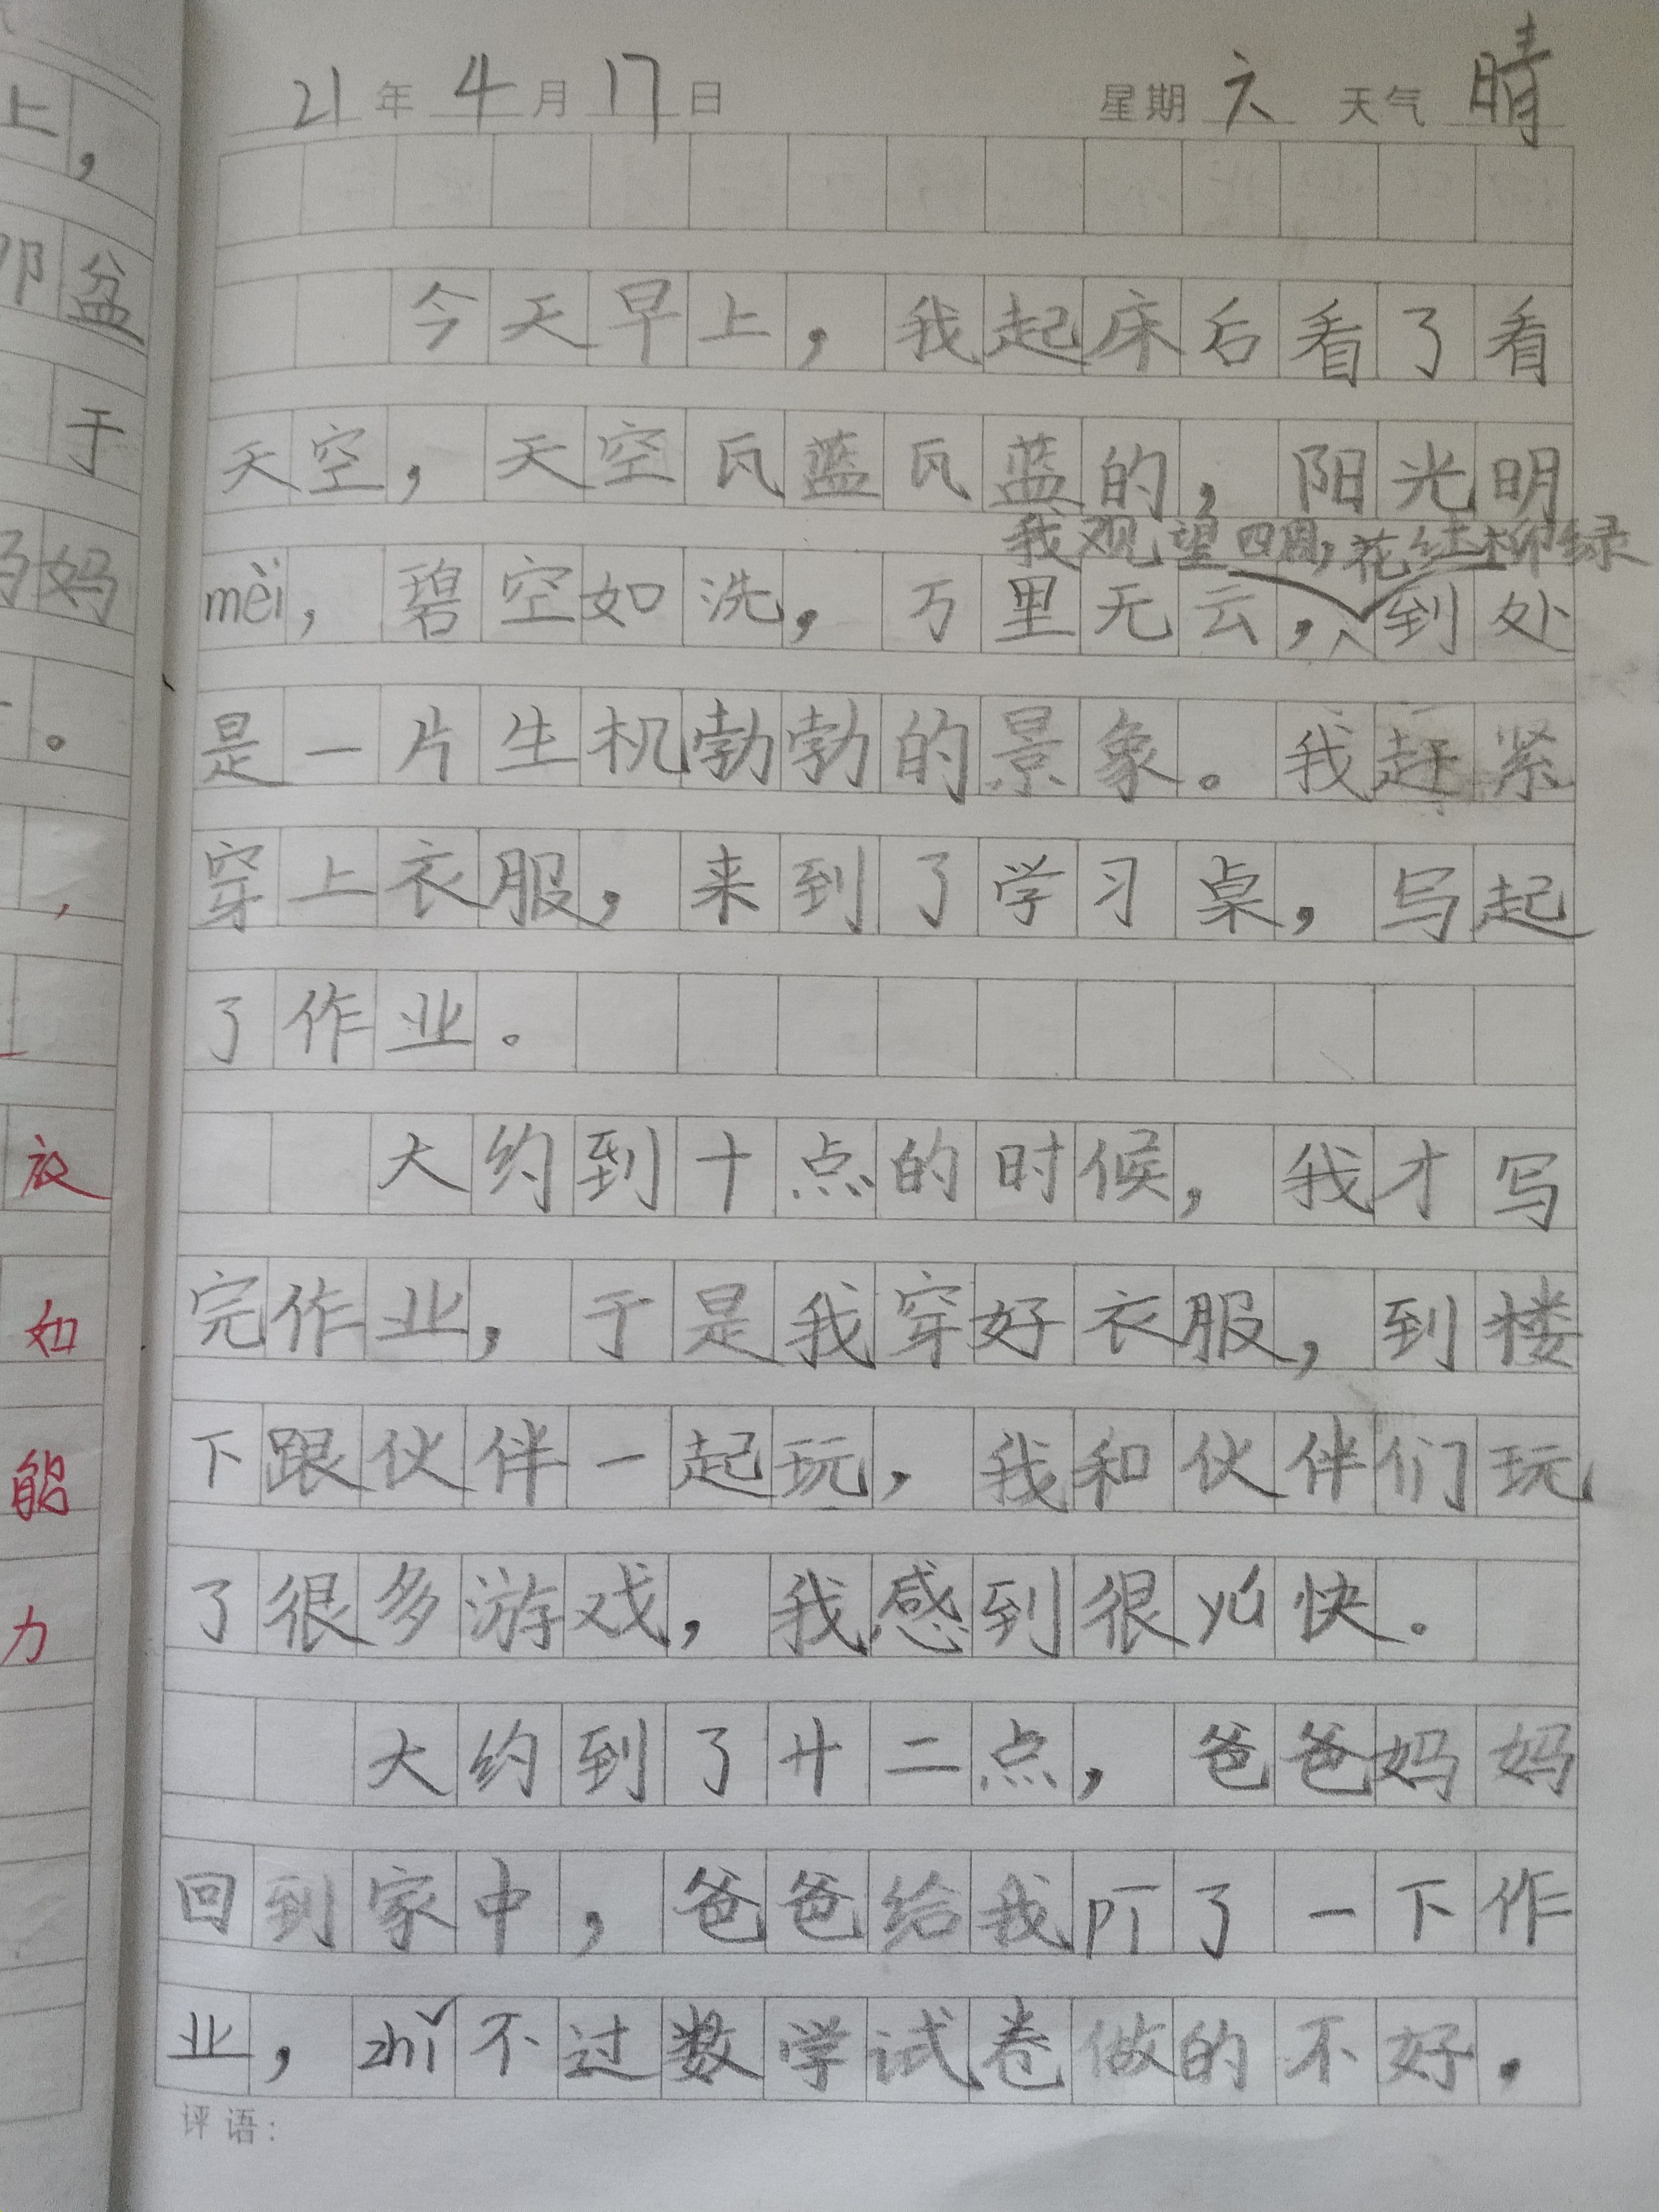 21年4月17日 星期六 天气晴
今天早上，我起床后看了看
天空，天空瓦蓝瓦蓝的，阳光明
我观望四周，花红柳绿
mèi，碧空如洗，万里无云，到处
是一片生机勃勃的景象。我赶紧
穿上衣服，来到了学习桌，写起
了作业。
大约到十点的时候，我才写
完作业，于是我穿好衣服，到楼
下跟伙伴一起玩，我和伙伴们玩
了很多游戏，我感到很yú快。
大约到了廿二点，爸爸妈妈
回到家中，爸爸给我了一下作
业，zhǐ不过数学试卷做的不好。
评语：
上，
盆
于
妈
。
，
放
如
能
力